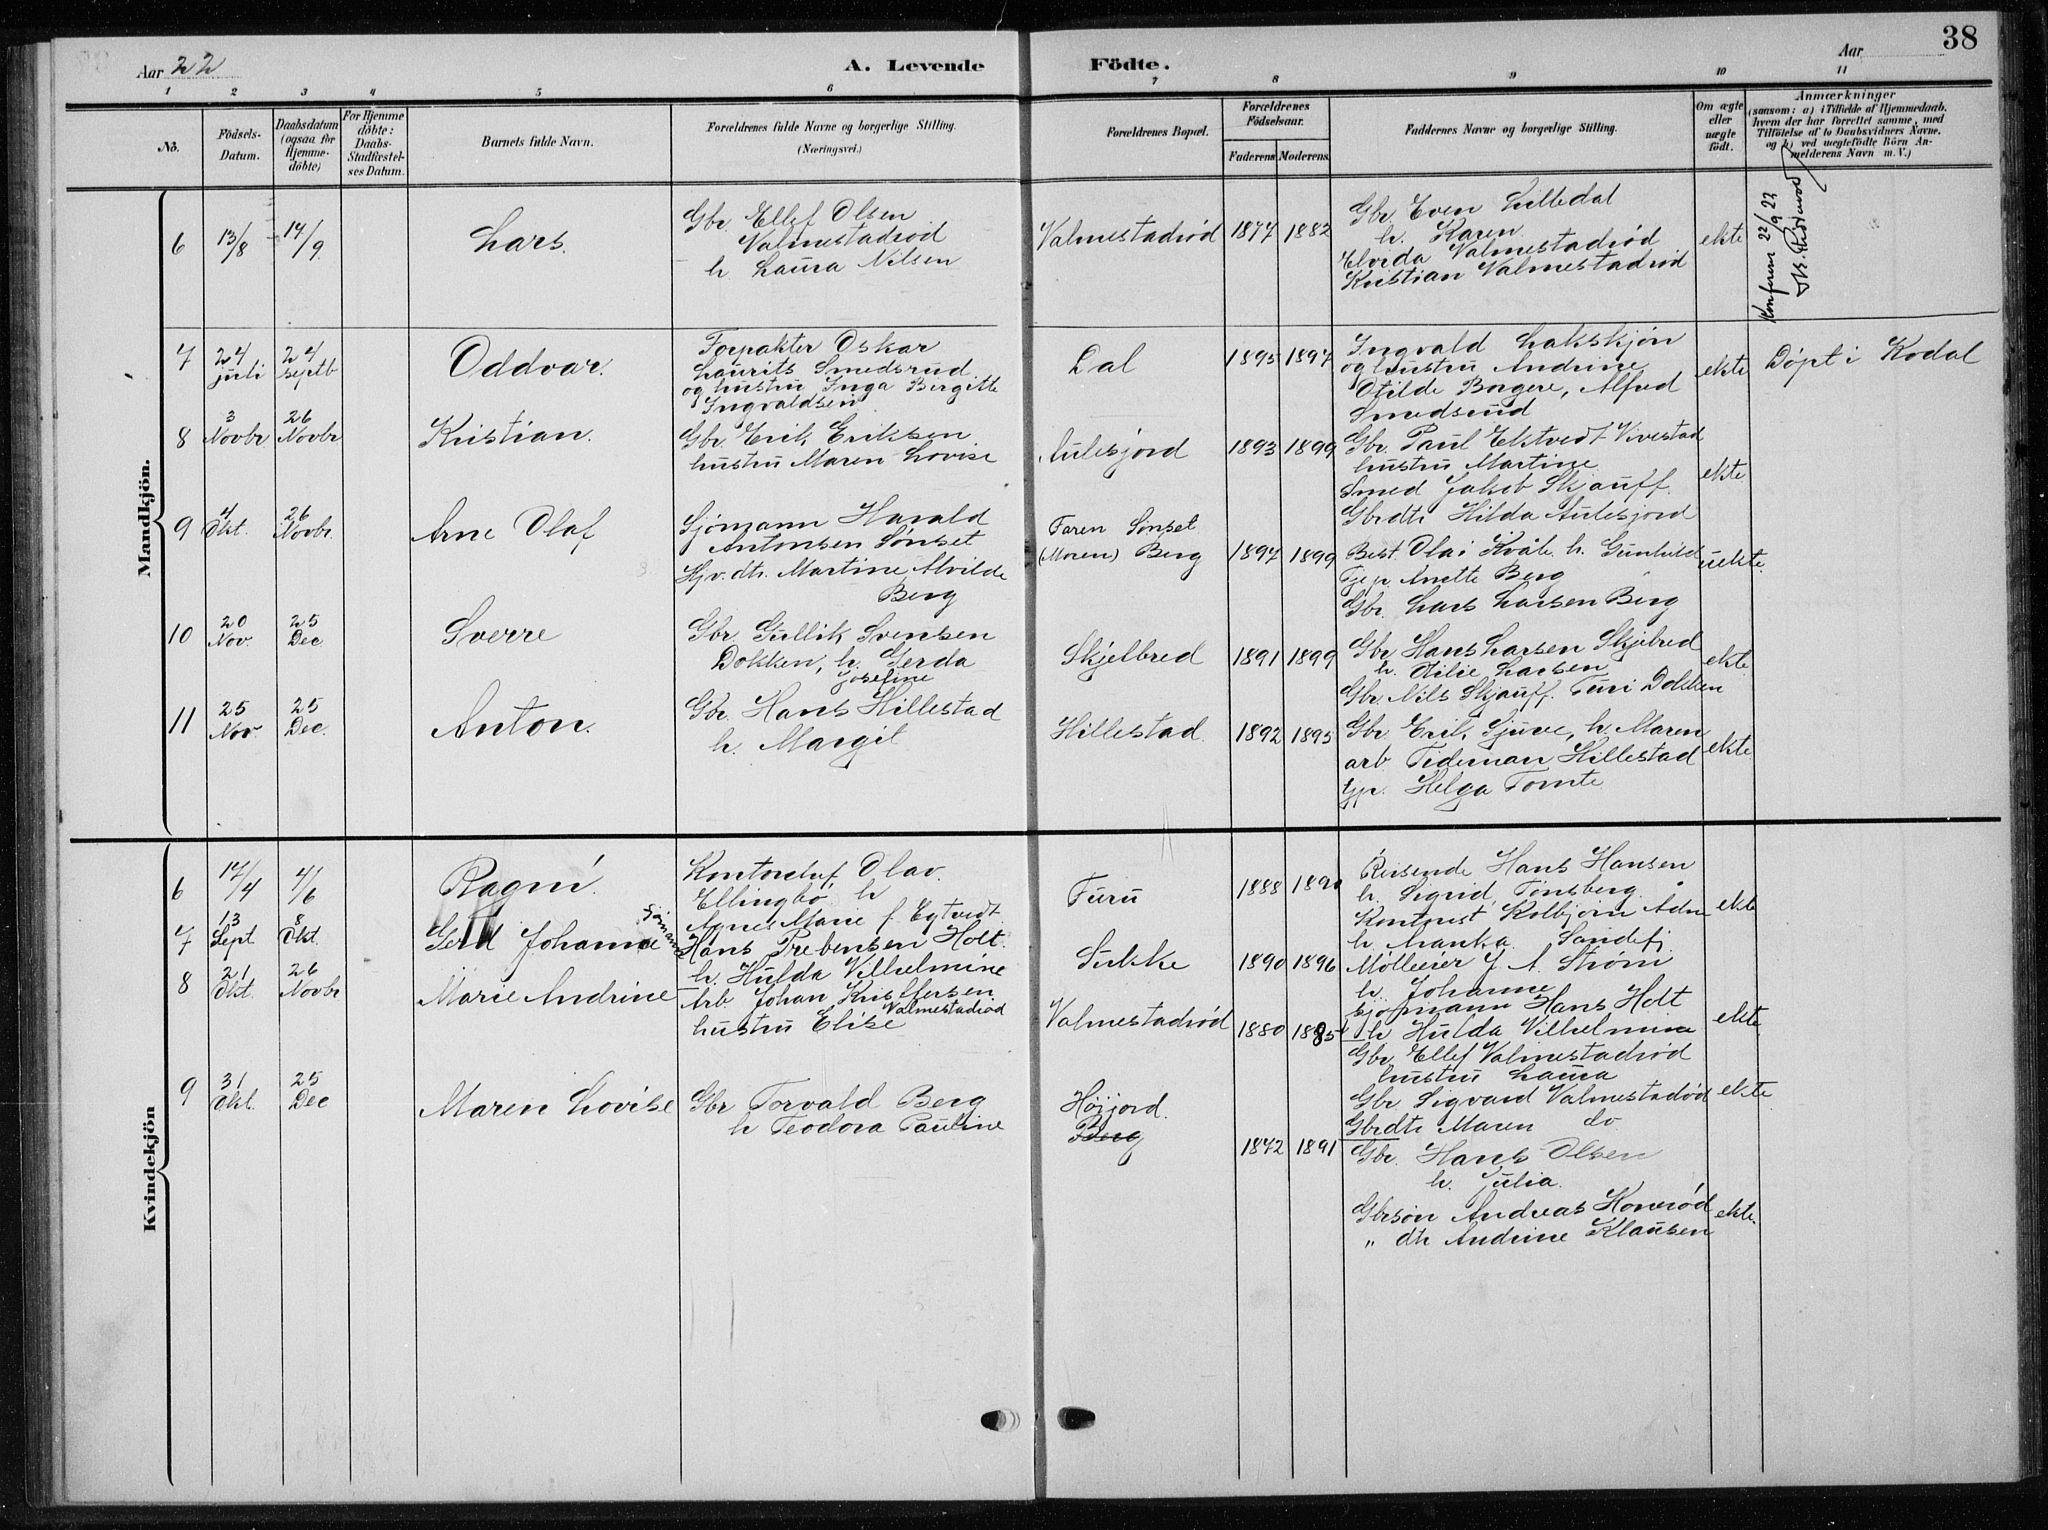 Aar 22
A. Levende Födte.
Aar
38
1 2 3 4 5 6 7 8 9 10 11
No.
Födsels-Datum.
Daabsdatum (ogsaa for Hjemmedöbte)
For Hjemmedöbte: Daabs-Stadfæstelses Datum.
Barnets fulde Navn.
Forældrenes fulde Navne og borgerlige Stilling.
(Næringsvei.)
Forældrenes Bopæl.
Forældrenes Födselsaar.
Faderens Moderens
Faddernes Navne og borgerlige Stilling.
Om ægte eller uægte födt.
Anmærkninger
(saasom: a) i Tilfælde af Hjemmedaab, hvem der har forrettet samme, med Tilföielse af to Daabsvidners Navne. og b) ved uægtefödte Börn Anmelderens Navn m. V.)
Mandkjön.
6 13/8 - 14/9 Lars.
Gbr. Ellef Olsen
Valmestadrød
h. Laura Nilsen
Valmestadrød 1877 1882
Gbr. Even Lilledal
h. Karen
Elvida Valmestadrød
Kristian Valmestadrød
ekte
Konferert 22/9 23
7 24 juli 24 septb Oddvar.
Forpakter Oskar
Laurits Smedsrud
og hustru Inga Bergitte
Ingvaldsen
Dal 1895 1897
Ingvald Lakskjøn
og hustru Andrine
Otilde Borgere, Alfred
Smedsrud
ekte
Døpt i Kodal
8 3 Novbr 26 Novbr Kristian.
Gbr. Erik Eriksen
hustru Maren Lovise
Aulesjord 1893 1899
Gbr. Paul Ektvedt Vivestad
hustru Martine
Smed Jakob Skjauff.
Gbrdtr Hilda Aulesjord
ekte
9 4 Okt. 26 Novbr. Arne Olaf
Sjömann Harald
Antonsen Sönset
Hjv. dtr. Martine Alvilde
Berg
Faren Sönset
(Moren) Berg 1897 1899
Best. Olai Kvåle h. Gunhild
Tjp. Anette Berg
Gbr. Lars Larsen Berg
uekte.
10 20 Nov. 25 Dec Sverre
Gbr. Gullik Svensen
Dokken, h. Gerda
Josefine
Skjelbred 1891 1899
Gbr Hans Larsen Skjelbred
h. Otilie Larsen
Gbr. Nils Skjauff. Turi Dokken
ekte
11 25 Nov. 25 Dec. Anton.
Gbr. Hans Hillestad
h. Margit
Hillestad. 1892 1895
Gbr Erik Sjuve, h. Maren
arb Tideman Hillestad
tjp. Helga Tomte
ekte
Kvindekjön
6 17/4 4/6 Ragni.
Kontorchef Olav.
Ellingbö h
Agnes Marie f. Egtvedt.
Furu 1888 1890
Reisende Hans Hansen
h. Sigrid, Tønsberg.
Kontorist Kolbjørn Adn
h. Manka. Sandefj.
ekte
7 13 Sept 8 Okt. Gerd Johanne
Sjömann
Hans Prebensen Holt.
h. Hulda Vilhelmine
Sukke 1890 1896
Mølleeier J. A. Strøm
h. Johanne
Sjømann Hans Holt
h Hulda Vilhelmine
ekte
8 21 Okt. 26 Novbr Marie Andrine
Arb Johan Kristffersen
Valmestadrød
hustru Elise
Valmestadrød 1880 1885
Gbr. Ellef Valmestadrød
hustru Laura
Gbr. Sigvard Valmestadrød
Gbrdtr Maren do
ekte
9 31 Okt. 25 Dec Maren Lovise
Gbr Torvald Berg
h Teodora Pauline
Höijord.
Berg
1872 1891
Gbr. Hans Olsen
h. Julia.
Gbrsön Andreas Honerød
" dtr Andrine Klausen
ekte.